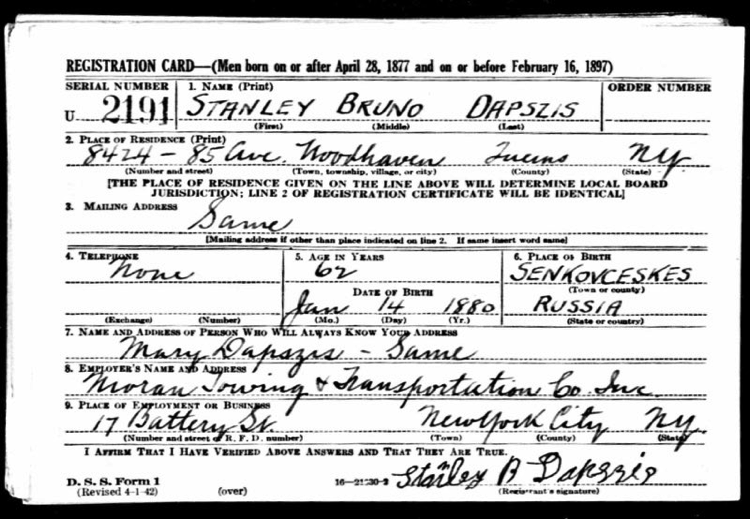 REGISTRATION CARD—(Men born on or after April 28, 1877 and on or before February 16, 1897)
SERIAL NUMBER 1. NAME (Print) ORDER NUMBER
U 2191 STANLEY BRUNO DAPSZIS
(First) (Middle) (Last)
2. PLACE OF RESIDENCE (Print)
8424 - 85 Ave. Woodhaven Queens NY
(Number and street) (Town, township, village, or city) (County) (State)
[THE PLACE OF RESIDENCE GIVEN ON THE LINE ABOVE WILL DETERMINE LOCAL BOARD
JURISDICTION; LINE 2 OF REGISTRATION CERTIFICATE WILL BE IDENTICAL]
3. MAILING ADDRESS
Same
[Mailing address if other than place indicated on line 2. If same insert word same]
4. TELEPHONE 5. AGE IN YEARS 6. PLACE OF BIRTH
None 62 SENKOVCESKES
(Town or county)
DATE OF BIRTH
Jan 14 1880 RUSSIA
(Exchange) (Number) (Mo.) (Day) (Yr.) (State or country)
7. NAME AND ADDRESS OF PERSON WHO WILL ALWAYS KNOW YOUR ADDRESS
Mary Dapszis - Same
8. EMPLOYER'S NAME AND ADDRESS
Moran Towing & Transportation Co. Inc.
9. PLACE OF EMPLOYMENT OR BUSINESS
17 Battery St. New York City NY.
(Number and street or R. F. D. number) (Town) (County) (State)
I AFFIRM THAT I HAVE VERIFIED ABOVE ANSWERS AND THAT THEY ARE TRUE.
Stanley B Dapszis
D. S. S. Form 1
(Revised 4-1-42) (over) (Registrant's signature)